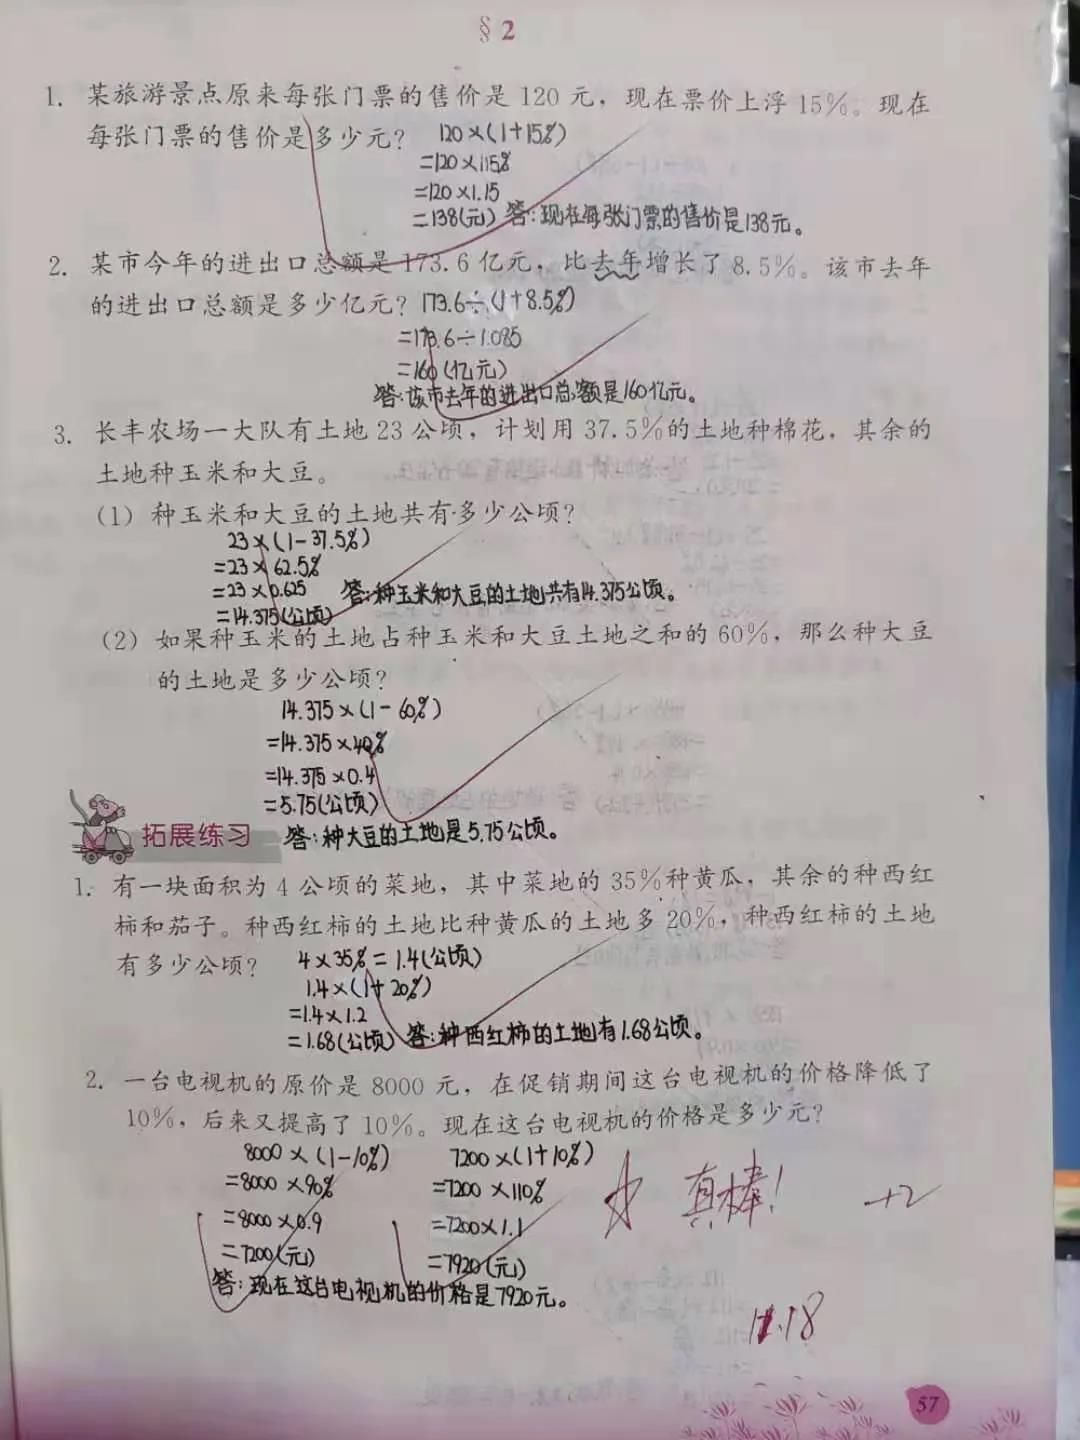 §2
1. 某旅游景点原来每张门票的售价是120元，现在票价上浮15%。现在
每张门票的售价是多少元？ 120×(1+15%)
=120×115%
=120×1.15
=138(元) 答:现在每张门票的售价是138元。
2. 某市今年的进出口总额是173.6亿元，比去年增长了8.5%。该市去年
的进出口总额是多少亿元？ 173.6÷(1+8.5%)
=173.6÷1.085
=160(亿元)
答:该市去年的进出口总额是160亿元。
3. 长丰农场一大队有土地23公顷，计划用37.5%的土地种棉花，其余的
土地种玉米和大豆。
(1) 种玉米和大豆的土地共有多少公顷？
23×(1-37.5%)
=23×62.5%
=23×0.625 答:种玉米和大豆的土地共有14.375公顷。
=14.375(公顷)
(2) 如果种玉米的土地占种玉米和大豆土地之和的60%，那么种大豆
的土地是多少公顷？
14.375×(1-60%)
=14.375×40%
=14.375×0.4
=5.75(公顷)
拓展练习 答:种大豆的土地是5.75公顷。
1. 有一块面积为4公顷的菜地，其中菜地的35%种黄瓜，其余的种西红
柿和茄子。种西红柿的土地比种黄瓜的土地多20%，种西红柿的土地
有多少公顷？ 4×35%=1.4(公顷)
1.4×(1+20%)
=1.4×1.2
=1.68(公顷) 答:种西红柿的土地有1.68公顷。
2. 一台电视机的原价是8000元，在促销期间这台电视机的价格降低了
10%，后来又提高了10%。现在这台电视机的价格是多少元？
8000×(1-10%) 7200×(1+10%)
=8000×90% =7200×110% 真棒! +2
=8000×0.9 =7200×1.1
=7200(元) =7920(元)
答:现在这台电视机的价格是7920元。
11.18
57